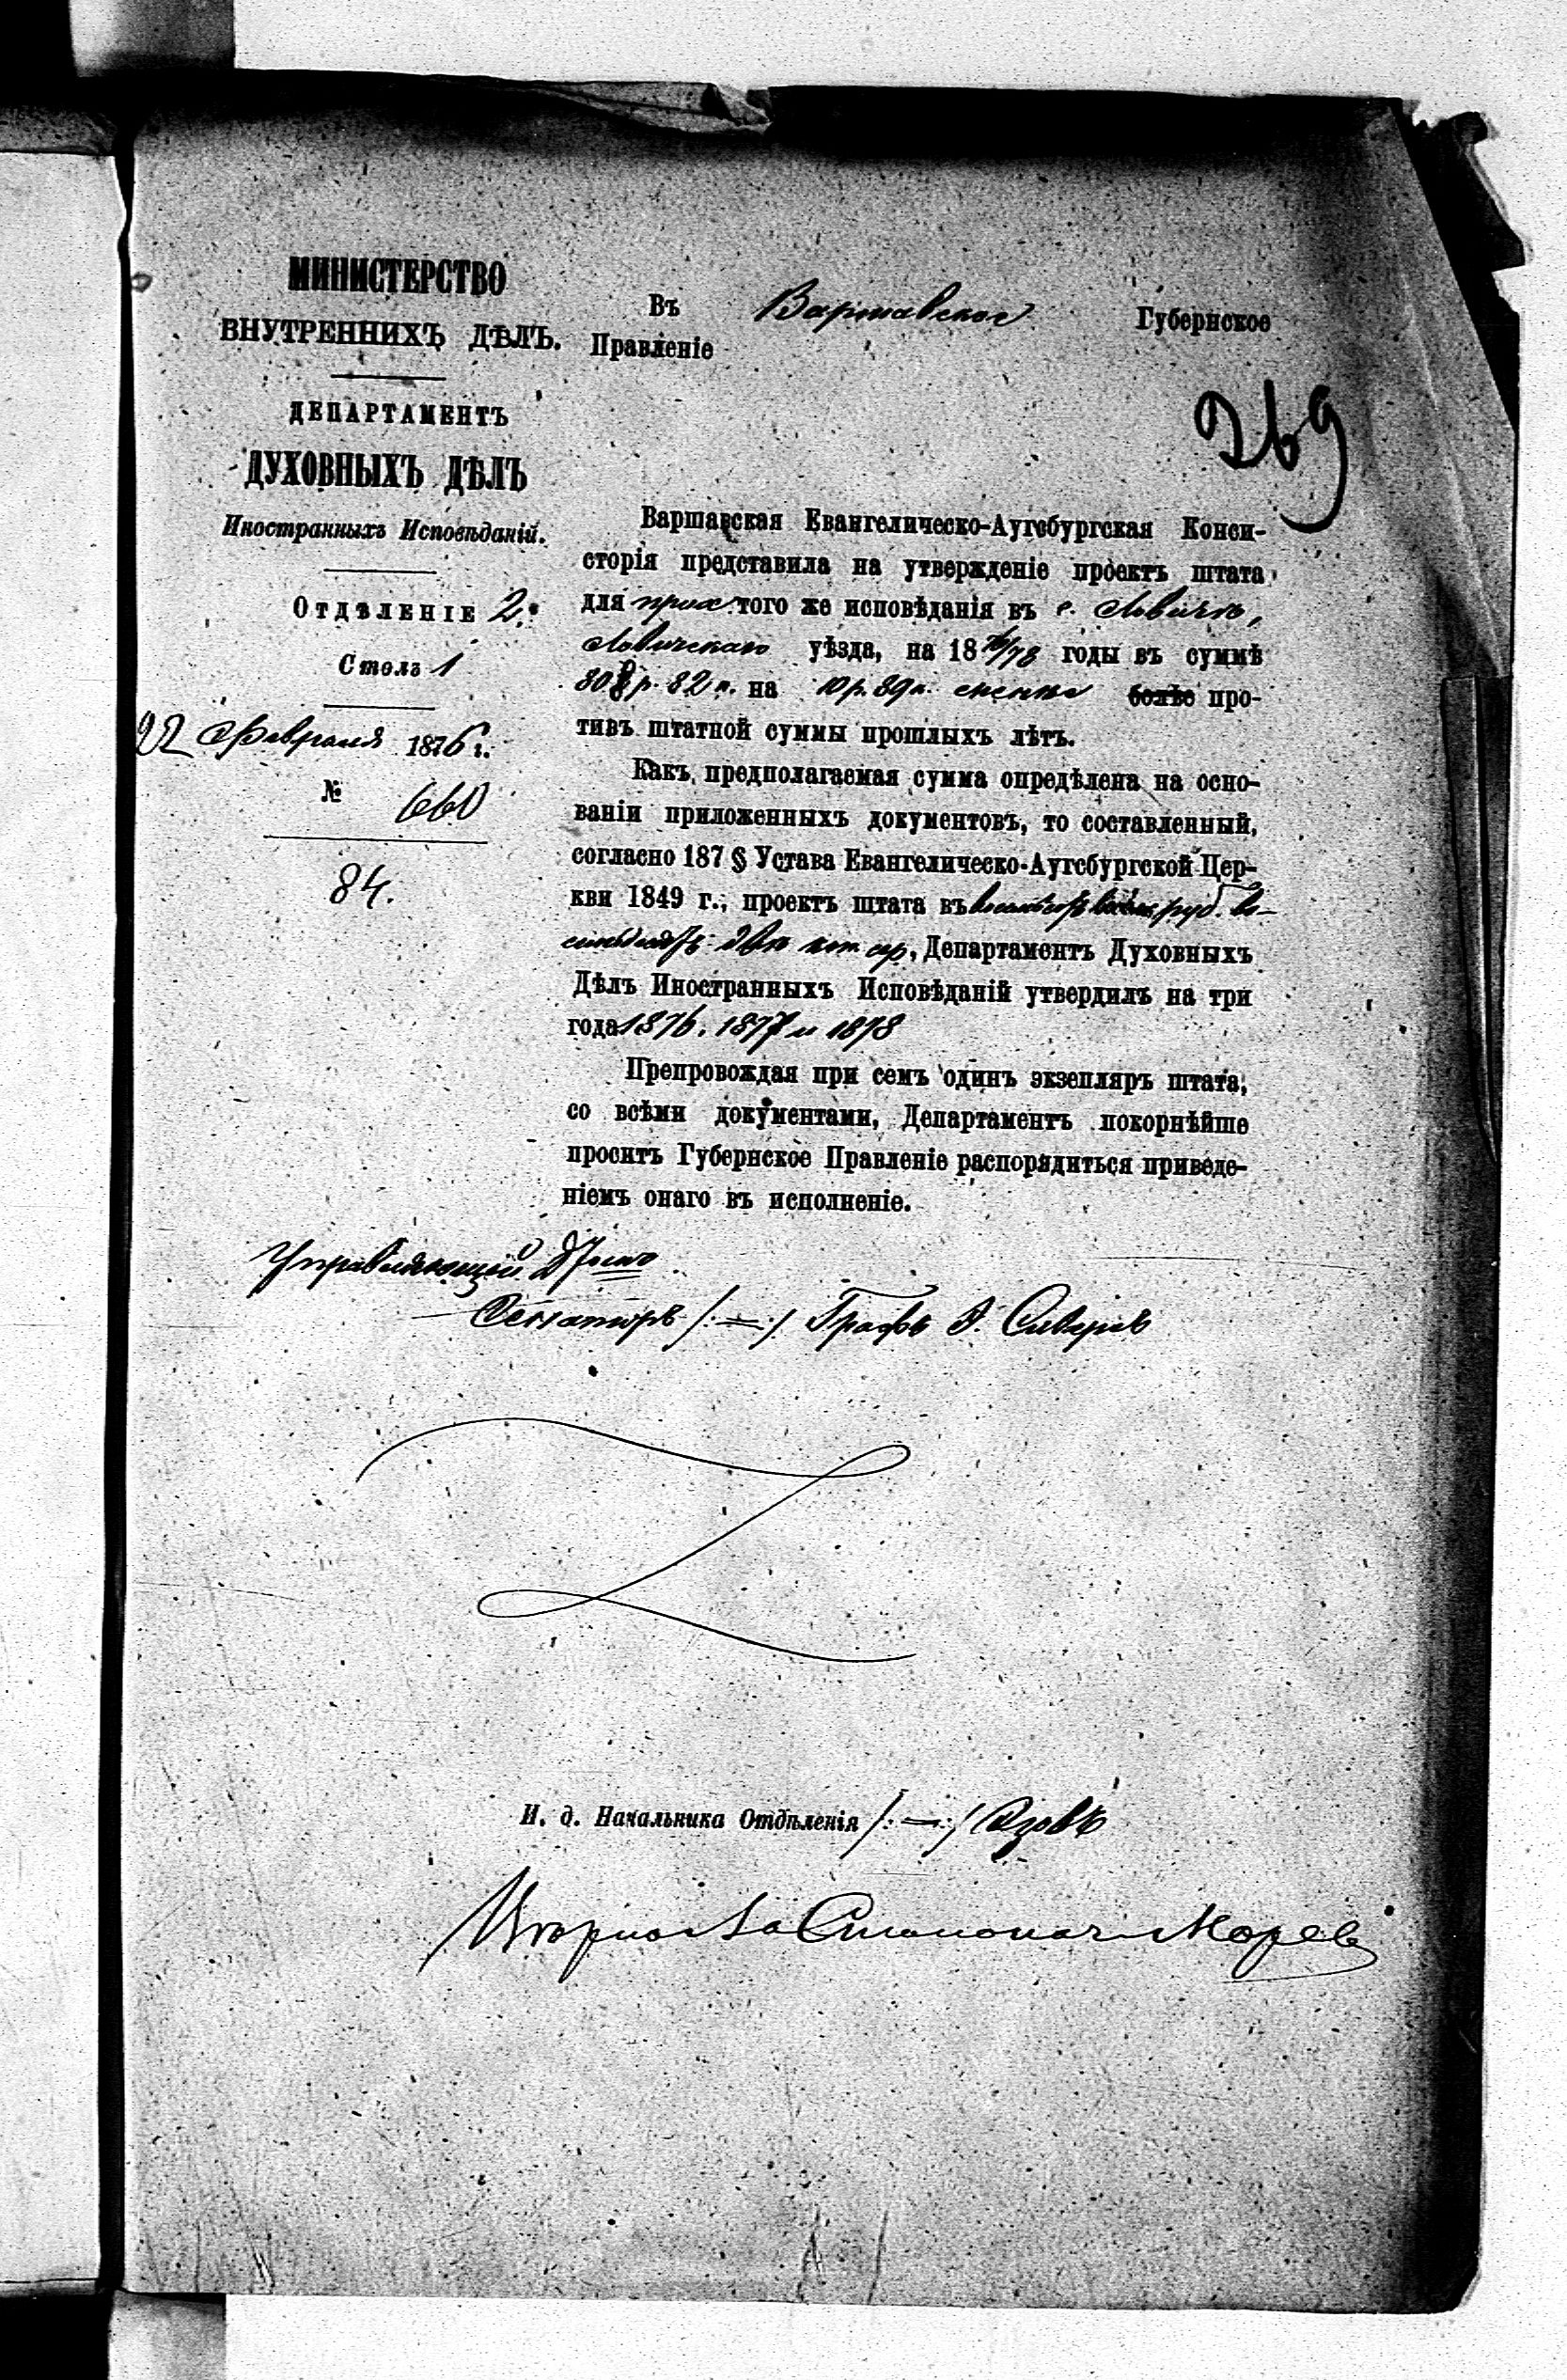 МИНИСТЕРСТВО
ВНУТРЕННИХЪ ДѢЛЪ.
ДЕПАРТАМЕНТЪ
ДУХОВНЫХЪ ДѢЛЪ
Иностранныхъ Исповѣданій.
Отдѣленіе 2.
Столъ 1
22 Февраля 1876 г.
№ 660
84.
Въ Варшавское Губернское
Правленіе
269
Варшавская Евангелическо-Аугсбургская Конси-
сторія представила на утвержденіе проектъ штата
для прих. того же исповѣданія въ г. Ловичѣ,
Ловичскаго уѣзда, на 1876/78 годы въ суммѣ
808 р. 82 к. на 10 р. 89 к. менѣе болѣе про-
тивъ штатной суммы прошлыхъ лѣтъ.
Какъ предполагаемая сумма опредѣлена на осно-
ваніи приложенныхъ документовъ, то составленный,
согласно 187 § Устава Евангелическо-Аугсбургской Цер-
кви 1849 г., проектъ штата въ восемьсотъ восемь руб. во-
семьдесятъ двѣ коп. сер., Департаментъ Духовныхъ
Дѣлъ Иностранныхъ Исповѣданій утвердилъ на три
года 1876, 1877 и 1878
Препровождая при семъ одинъ экземпляръ штата,
со всѣми документами, Департаментъ покорнѣйше
проситъ Губернское Правленіе распорядиться приведе-
ніемъ онаго въ исполненіе.
Управляющій
Сенаторъ /:—:/ Графъ Сиверсъ
И. д. Начальника Отдѣленія /:—:/